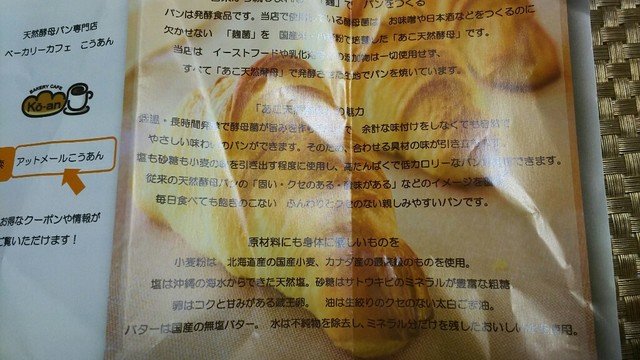 天然酵母パン専門店
ベーカリーカフェ こうあん
BAKERY CAFE
Kō-an
アットメールこうあん
お得なクーポンや情報が
ご覧いただけます！
「麹」でパンをつくる
パンは発酵食品です。当店で使用している酵母菌は、お味噌や日本酒などをつくるのに
欠かせない 「麹菌」を 国産米、小麦粉で培養した「あこ天然酵母」です。
当店は イーストフードや乳化剤などの添加物は一切使用せず、
すべて「あこ天然酵母」で発酵させた生地でパンを焼いています。
「あこ天然酵母」の魅力
低温・長時間発酵で酵母菌が旨みを作り 余計な味付けをしなくても
やさしい味わいのパンができます。そのため、合わせる具材の味が引き立
塩も砂糖も小麦の味を引き出す程度に使用し、高たんぱくで低カロリーなパンが できます。
従来の天然酵母パンの「固い・クセのある・酸味がある」などのイメージを
毎日食べても飽きのこない ふんわりとクセのない親しみやすいパンです。
原材料にも身体に優しいものを
小麦粉は、北海道産の国産小麦、カナダ産の最高級のものを使用。
塩は沖縄の海水からできた天然塩。砂糖はサトウキビのミネラルが豊富な粗糖
卵はコクと甘みがある蔵王卵。 油は生絞りのクセのない太白ごま油。
バターは国産の無塩バター。 水は不純物を除去し、ミネラル分だけを残したおいしい 使用。